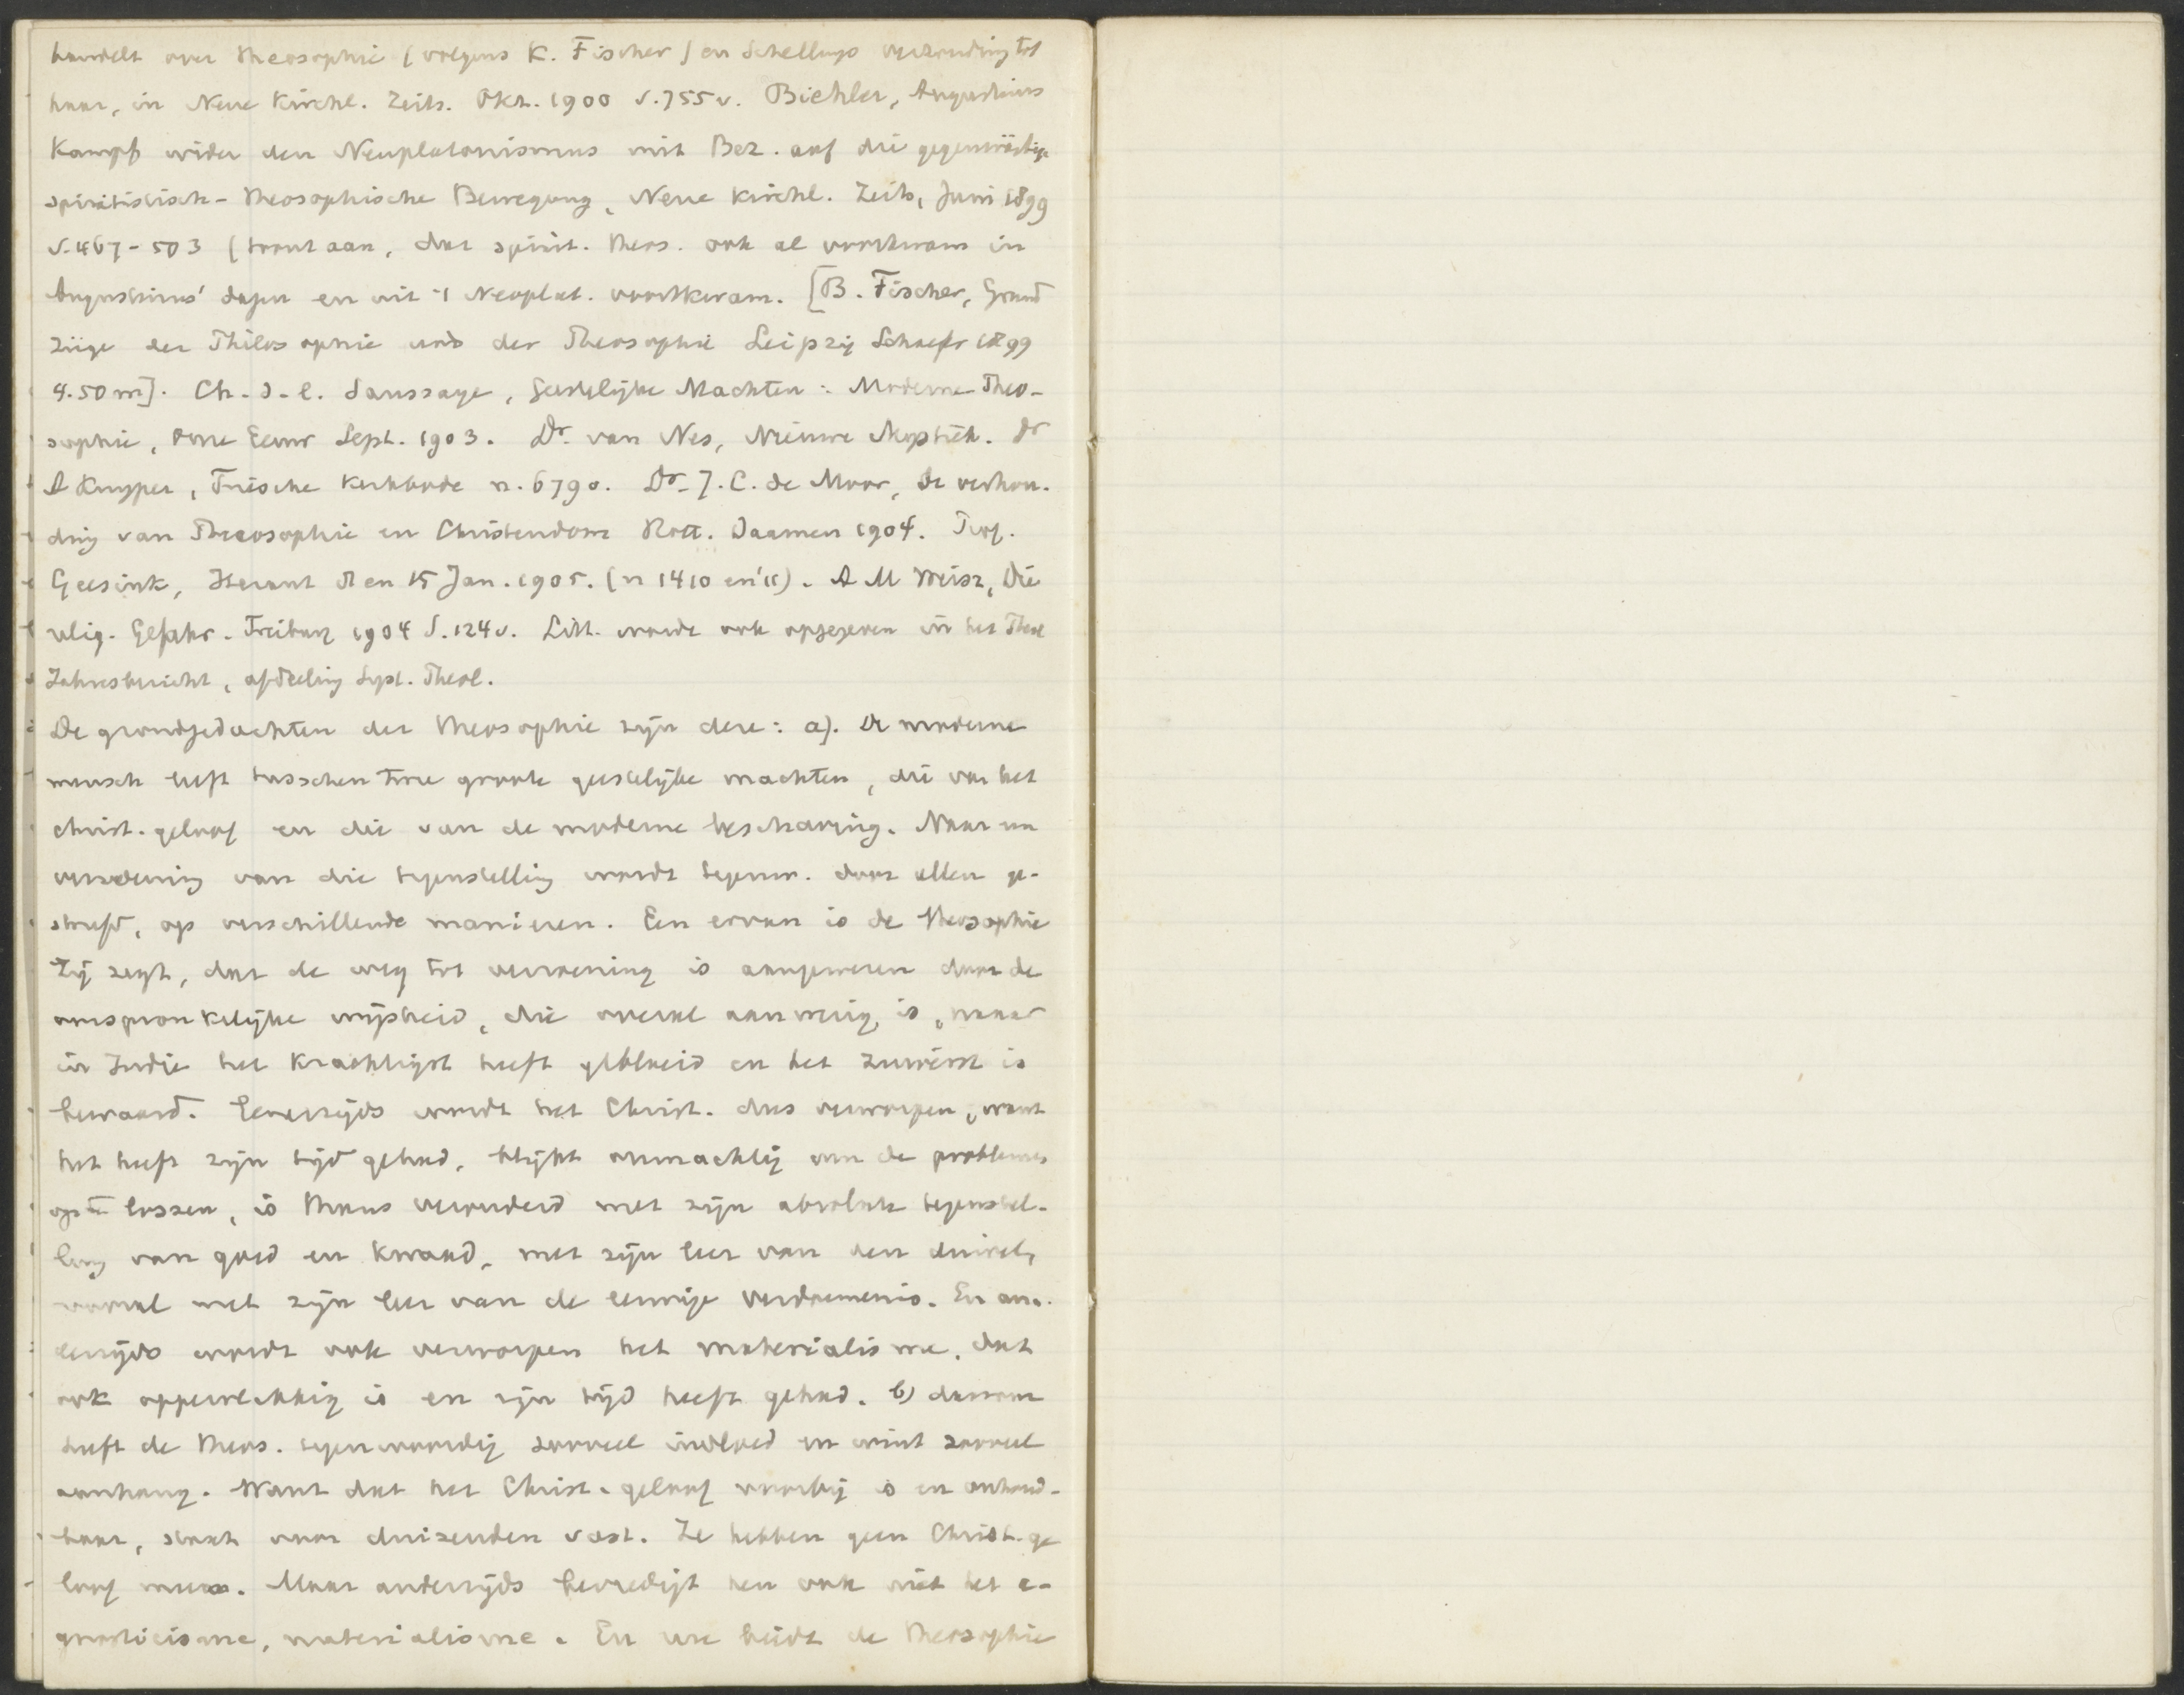 handelt over theosophie (volgens K. Fischer) en Schellings verhouding tot
haar, in Neue Kirchl. Zeits. Okt. 1900 S. 755 v. Bichler, Augustinus
Kampf wider den Neuplatonismus mit Bez. auf die gegenwärtige
spiritistisch-theosophische Bewegung, Neue Kirchl. Zeits, Juni 1899
S. 467-503 (toont aan, dat spirit. theos. ook al voorkwam in
Augustinus' dagen en uit 't Neoplat. voortkwam. [B. Fischer, Grund
züge der Philosophie und der Theosophie Leipzig Schaefer 1899
4.50 m]. Ch. d. l. Saussaye, Geestelijke Machten: Moderne Theo-
sophie, Onze Eeuw Sept. 1903. Dr. van Nes, Nieuwe Mystiek. Dr
A Kuyper, Friesche Kerkbode n. 6790. Dr. J. C. de Moor, de verhou-
ding van Theosophie en Christendom Rott. Daamen 1904. Prof.
Geesink, Heraut 8 en 15 Jan. 1905. (n 1410 en '11). A M Weisz, Die
relig. Gefahr. Freiburg 1904 S. 124 v. Litt. wordt ook opgegeven in het Theol
Jahresbericht, afdeeling Syst. Theol.
De grondgedachten der theosophie zijn deze: a). De moderne
mensch leeft tusschen twee groote geestelijke machten, die van het
christ. geloof en die van de moderne beschaving. Naar een
verzoening van die tegenstelling wordt tegenw. door allen ge-
streefd, op verschillende manieren. Een ervan is de theosophie
Zij zegt, dat de weg tot verzoening is aangewezen door de
oorspronkelijke wijsheid, die overal aanwezig is, maar
in Indië het krachtigst heeft gebloeid en het zuiverst is
bewaard. Eenerzijds wordt het Christ. dus verworpen, want
het heeft zijn tijd gehad, blijkt onmachtig om de problemen
op te lossen, is thans verouderd met zijn absolute tegenstel-
ling van goed en kwaad, met zijn leer van den duivel,
vooral met zijn leer van de eeuwige verdoemenis. En an-
derzijds wordt ook verworpen het materialisme, dat
ook oppervlakkig is en zijn tijd heeft gehad. b) daarom
heeft de theos. tegenwoordig zooveel invloed en wint zooveel
aanhang. Want dat het Christ. geloof voorbij is en onhoud-
baar, staat voor duizenden vast. Ze hebben geen Christ. ge
loof meer. Maar anderzijds bevredigt hen ook niet het a-
gnosticisme, materialisme. En nu biedt de theosophie